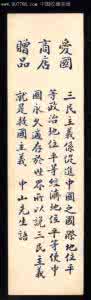 愛國
商店
贈品
三民主義係促進中國之國際地位平
等政治地位平等經濟地位平等使中
國永久適存於世界所以說三民主義
就是救國主義 中山先生語